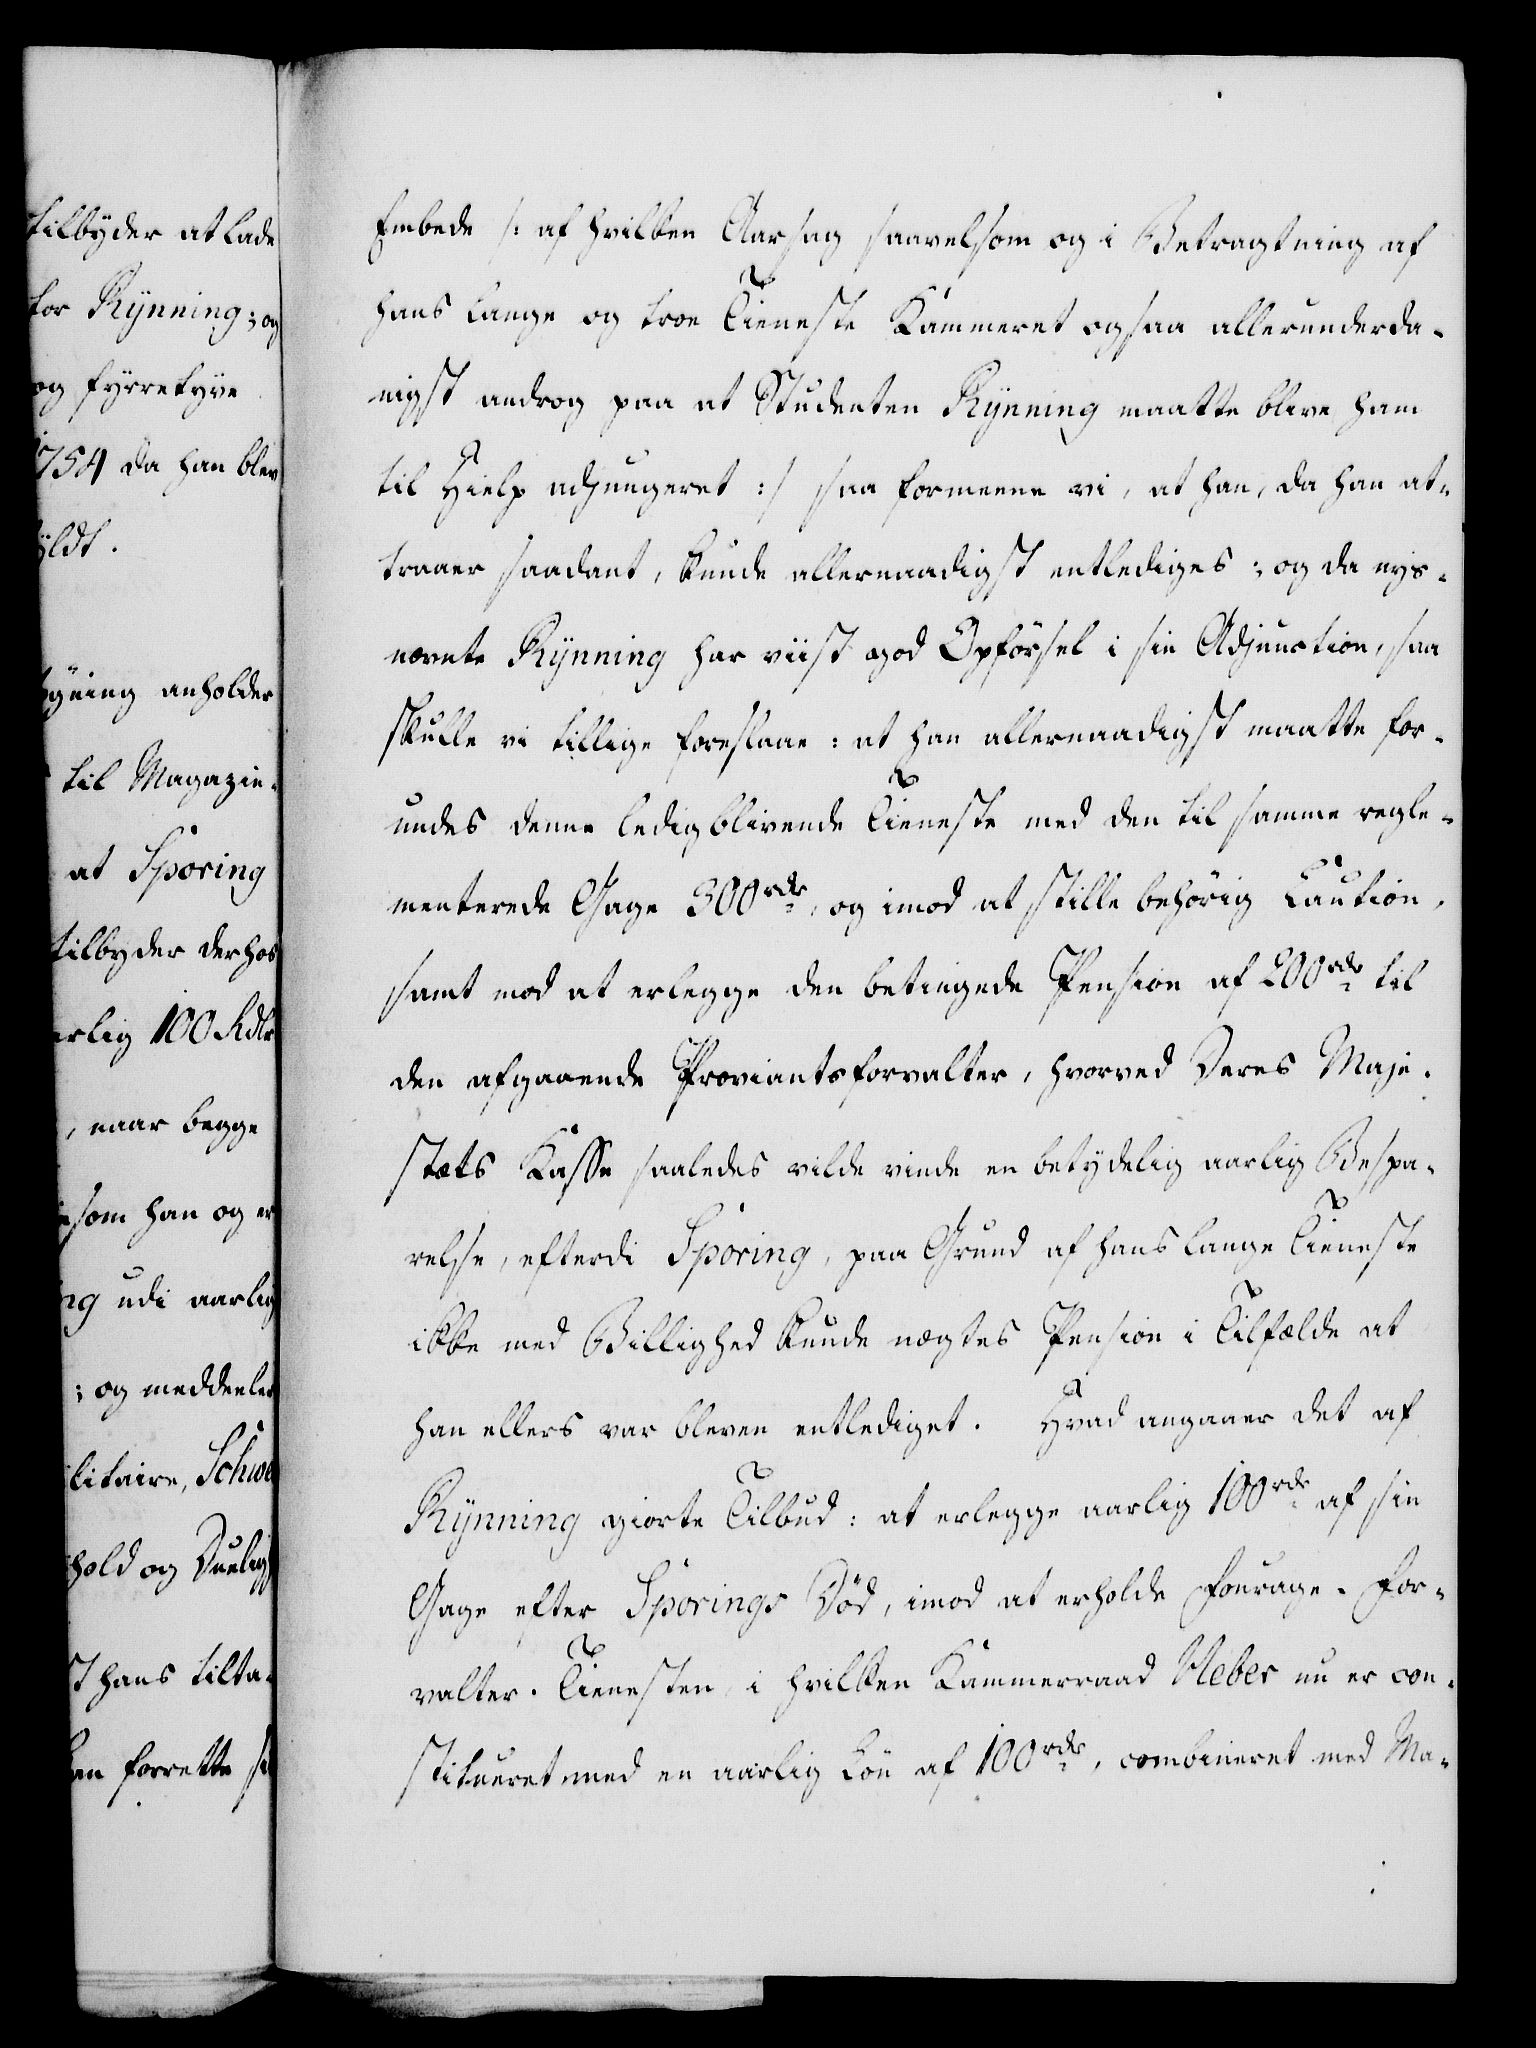 tilbyder at lade
tor Rynning; og
og fyrretyve
1754 da han blev
yldt.
anholder
til Magazin-
at Sporing
tilbyder derhos
arlig 100 Rdlr
, naar begge
som han og er
ng udi aarlig
; og meddeeler
litaire, Schwe
hold og Duelig
hans tilta-
forrette
Embede /: af hvilken Aarsag saavelsom og i Betragtning af
hans lange og troe Tieneste Kammeret ogsaa allerunderda-
nigst androg paa at Studenten Rynning maatte blive ham
til Hielp adjungeret :/ saa formeene vi, at han, da han at-
traaer saadant, kunde allernaadigst entlediges; og da nys-
nævnte Rynning har viist god Opførsel i sin Adjunction, saa
skulle vi tillige foreslaae: at han allernaadigst maatte for-
undes denne ledigblivende Tieneste med den til samme regle-
menterede Gage 300 rdr, og imod at stille behørig Caution,
samt mod at erlegge den betingede Pension af 200 rdr til
den afgaaende Proviantsforvalter, hvorved Deres Maje-
stæts Kasse saaledes vilde vinde en betydelig aarlig Bespa-
relse, efterdi Sporing, paa Grund af hans lange Tieneste
ikke med Billighed kunde nægtes Pension i Tilfælde at
han ellers var bleven entlediget. Hvad angaaer det af
Rynning giorte Tilbud: at erlegge aarlig 100 rdr af sin
Gage efter Sporings Død, imod at erholde Fourage-For-
valter-Tienesten, i hvilken Kammerraad Heber nu er con-
stitueret med en aarlig Løn af 100 rdr, combineret med Ma-